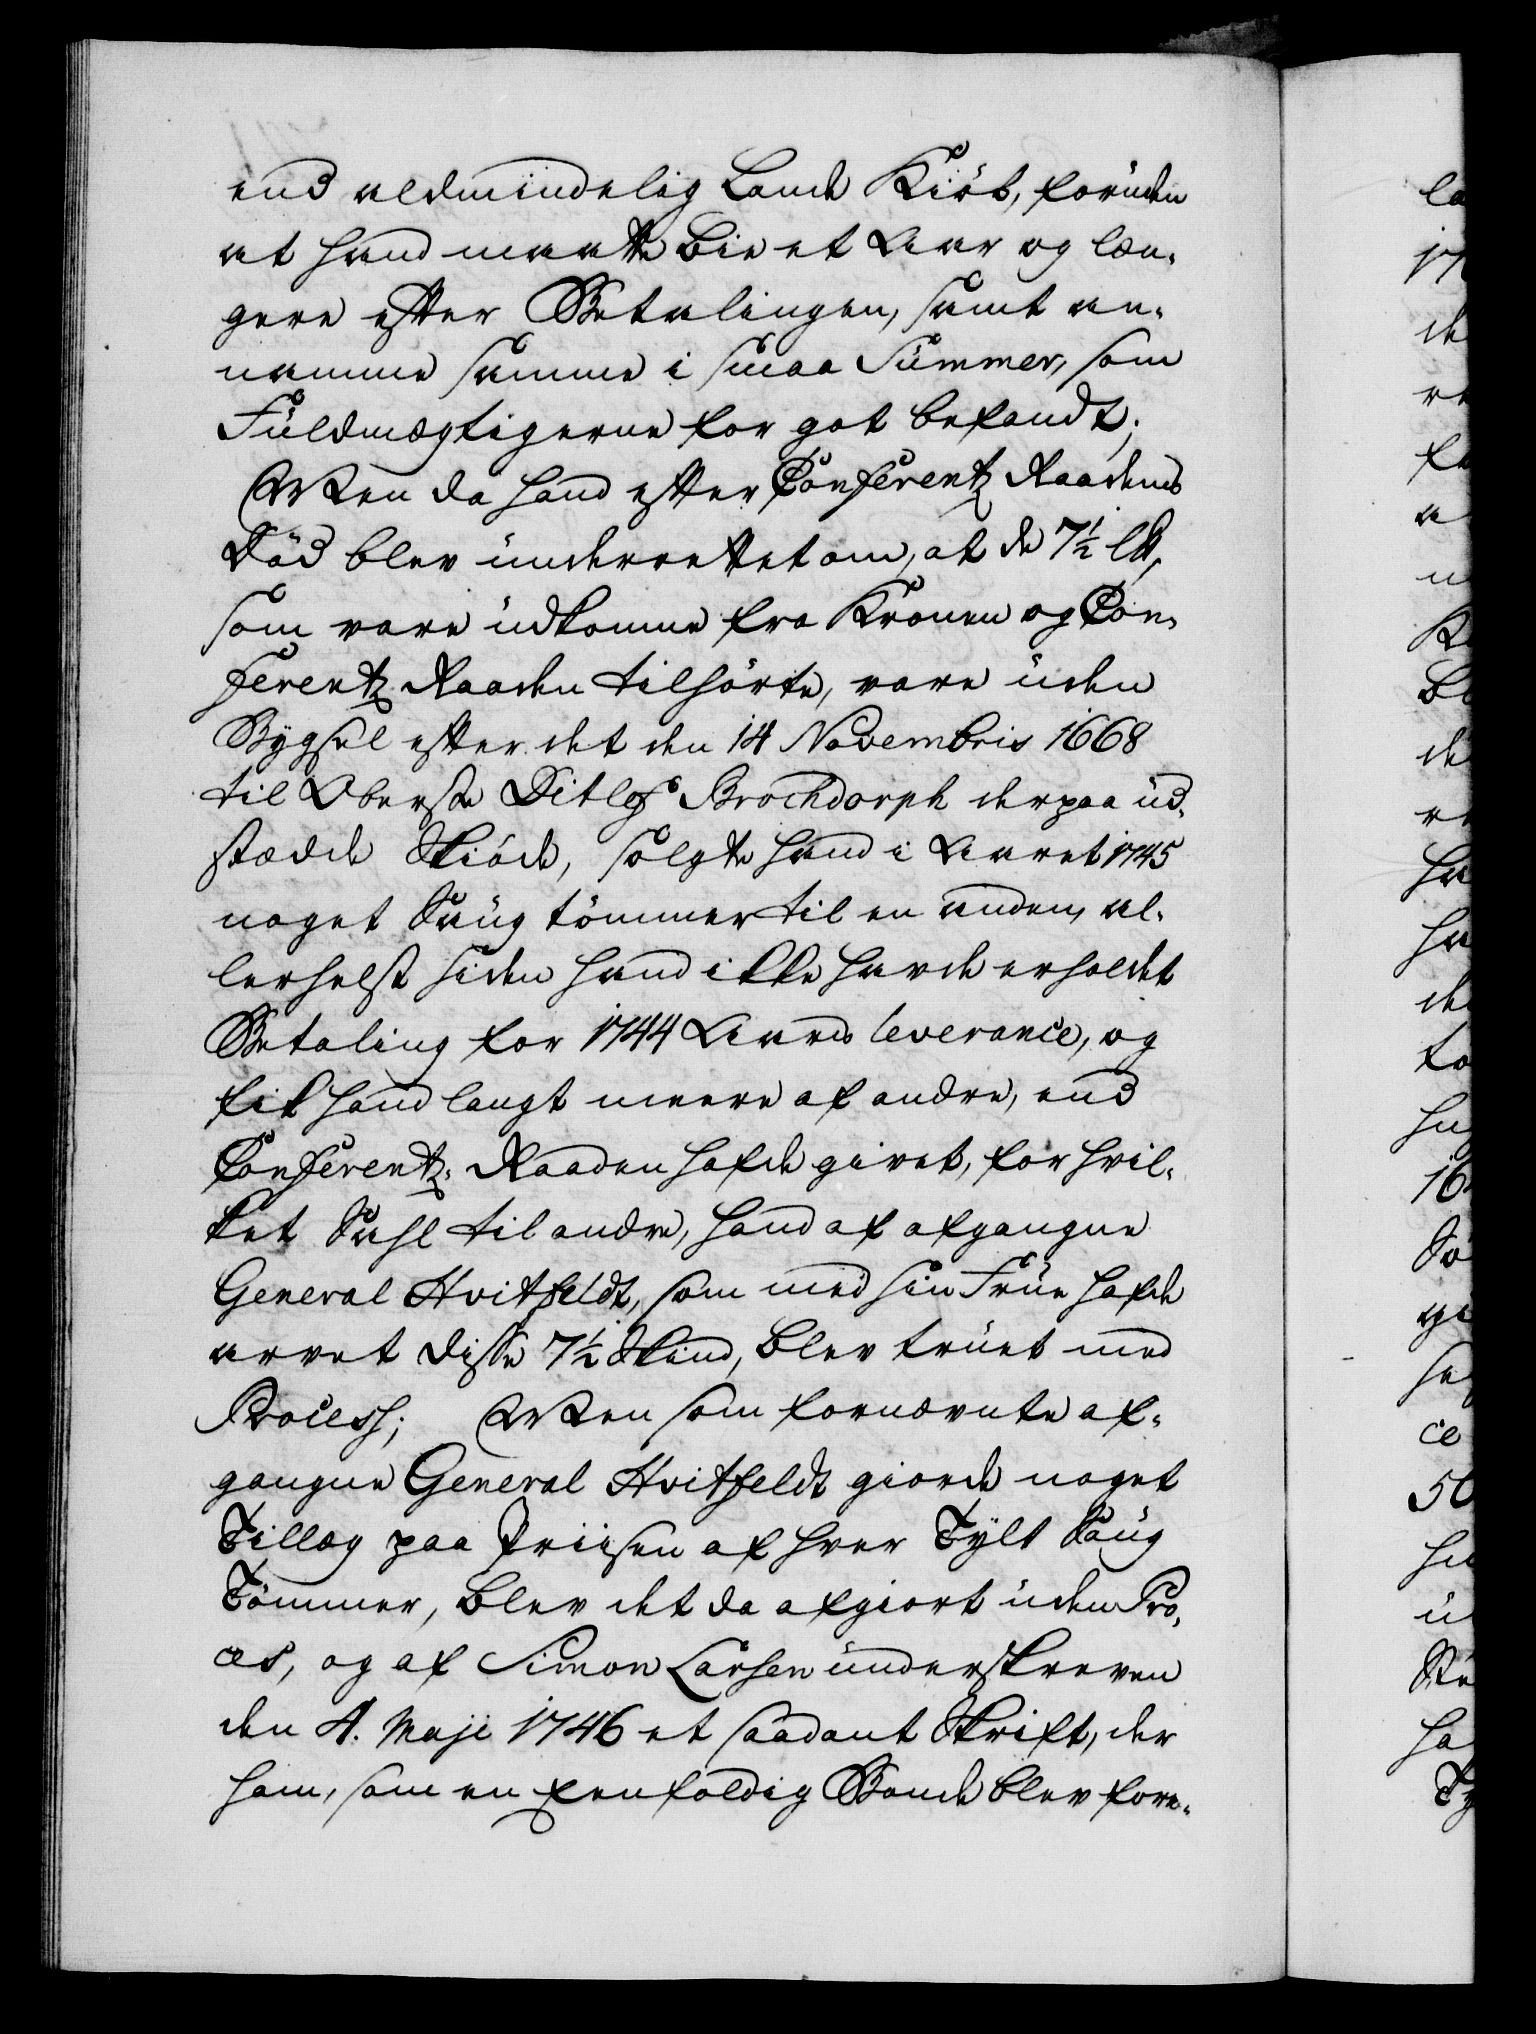 end aldmindelig Lands Kiöb, foruden
at hand maatte bie et Aar og læn-
gere efter Betalingen, samt an-
namme samme i smaa Summer, som
Fuldmægtigerne for got befandt;
Men da hand efter Conferentz Raadens
Död blev underrettet om, at de 7½
som vare udkomne fra Kronen og Con-
ferentz Raaden tilhörte, vare uden
Bygsel efter det den 14 Novembris 1668
til Oberste Ditlef Brochdorph derpaa ud-
stædde Skiöde, solgte hand i Aaret 1745
noget Saugtömmer til en anden, al-
lerhelst siden hand ikke havde erholdet
Betaling for 1744 Aars leverance, og
fik hand langt meere af andre, end
Conferentz-Raaden hafde givet, for hvil-
ket Sahl til andre, hand af afgangne
General Hvitfeldt, som med sin Frue hafde
arvet disse 7½ Skind, blev truet med
Process; Men som fornævnte af-
gangne General Hvitfeldt giorde noget
Tillæg paa Priisen af hver Tylt Saug
Tömmer, blev det da afgiort uden Pro-
ces, og af Simon Larsen underskreven
den 4. Maji 1746 et saadant Skrift, der
ham, som en eenfoldig Bonde blev fore-